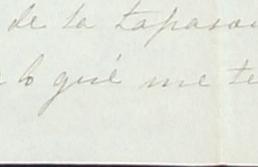 de la tapara
lo qué me te